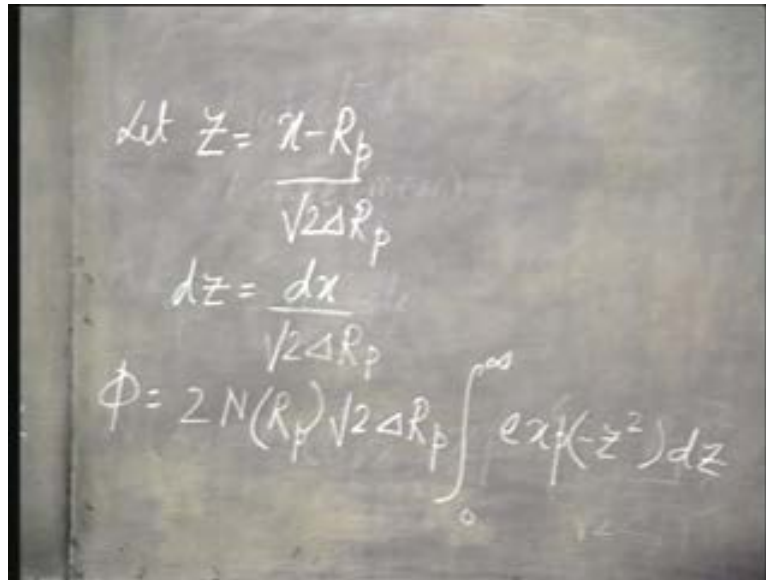 Let Z = x - Rp
√2ΔRp
dz = dx
√2ΔRp
Φ = 2 N(Rp) √2ΔRp ∫₀^∞ exp(-z²) dz